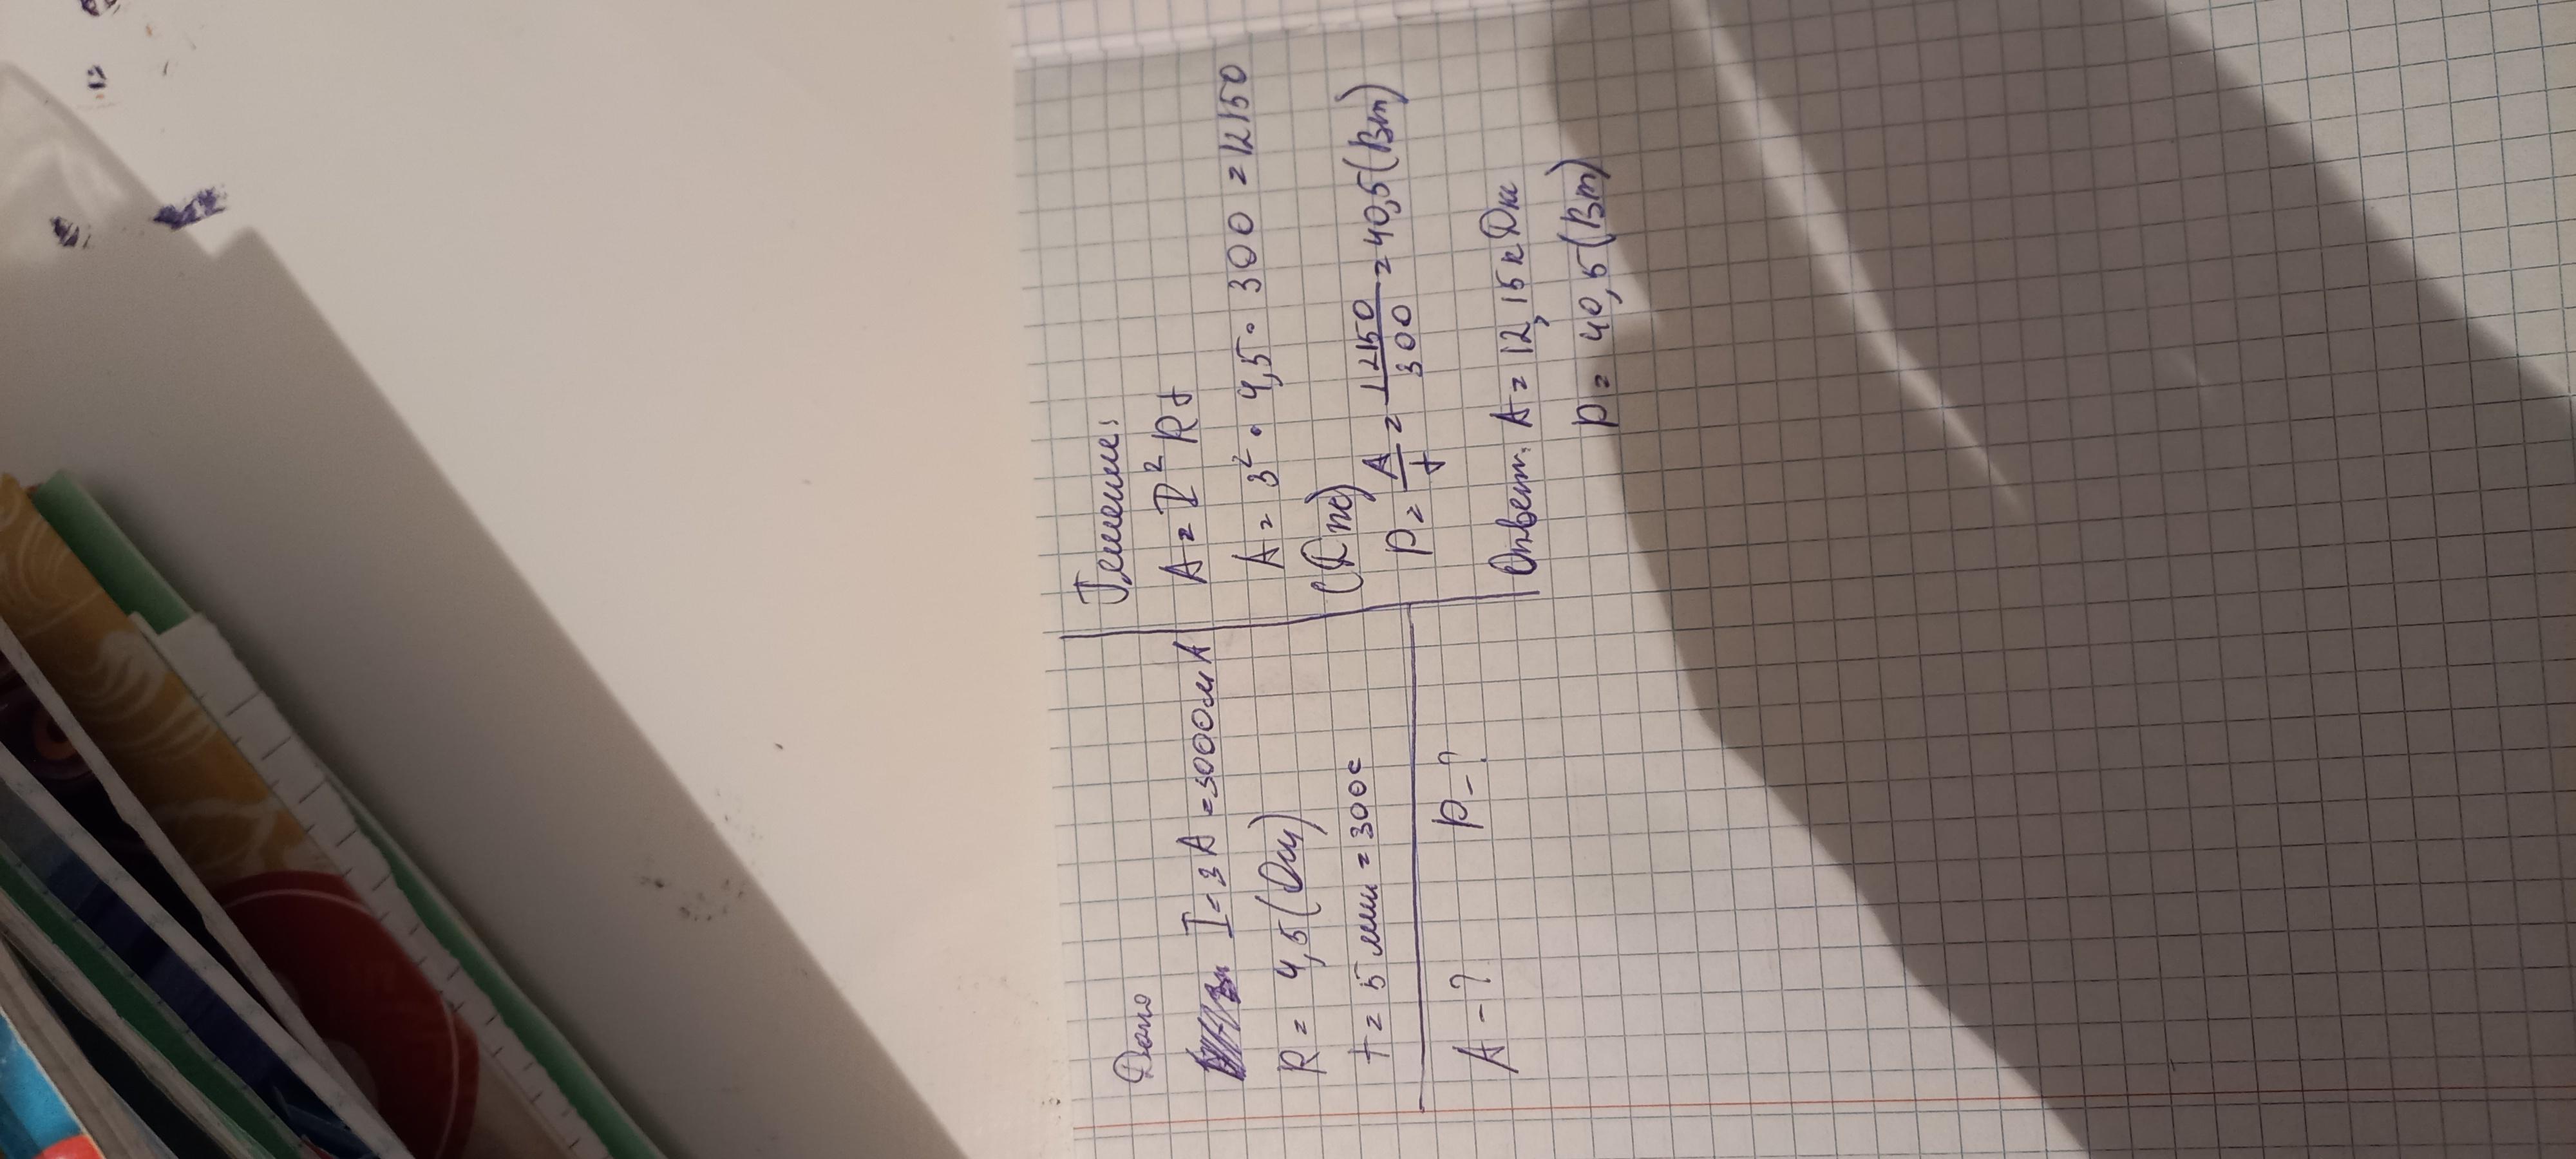 Дано
I = 3 А = 3000 мА
R = 4,5 (Ом)
t = 5 мин = 300 с
А - ? Р - ?
Решение:
A = I² R t
A = 3² · 4,5 · 300 = 12150
(Дж)
P = A/t = 12150/300 = 40,5 (Вт)
Ответ: A = 12,15 кДж
P = 40,5 (Вт)